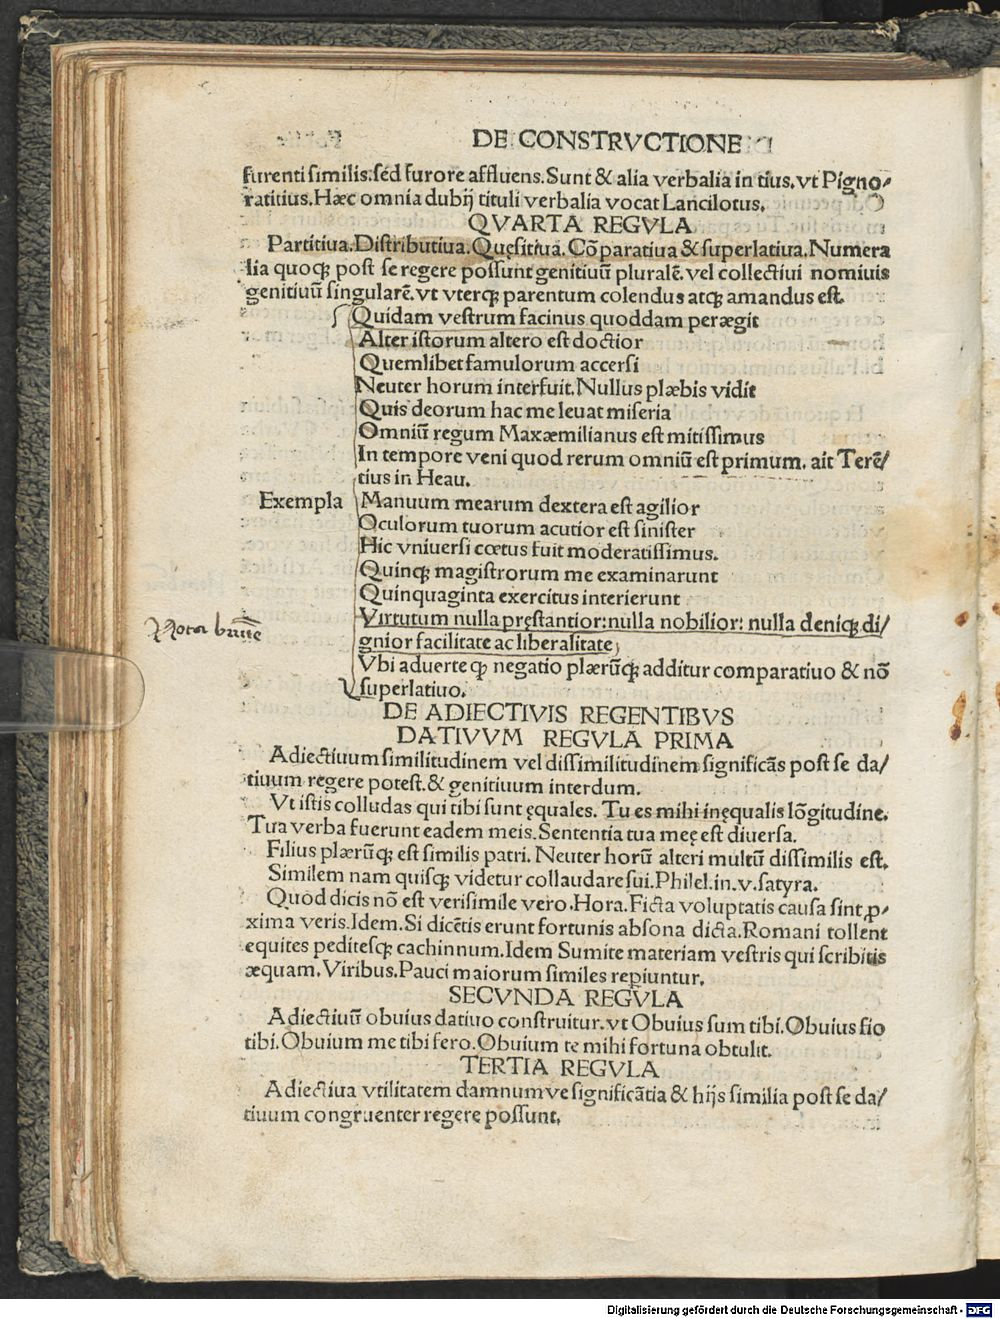 DE CONSTRVCTIONE
furenti similis:sed furore affluens.Sunt & alia verbalia in tius.vt Pigno/
ratitius.Hæc omnia dubij tituli verbalia vocat Lancilotus.
QVARTA REGVLA
Partitiua.Distributiua.Quęsitiua.Cõparatiua & superlatiua.Numera
lia quoqꝫ post se regere possunt genitiuũ pluralẽ.vel collectiui nomiuis
genitiuũ singularẽ.vt vterqꝫ parentum colendus atqꝫ amandus est.
Quidam vestrum facinus quoddam peræegit
Alter istorum altero est doctior
Quemlibet famulorum accersi
Neuter horum interfuit.Nullus plæbis vidit
Quis deorum hac me leuat miseria
Omniũ regum Maxæmilianus est mitissimus
In tempore veni quod rerum omniũ est primum. ait Terẽ/
tius in Heau.
Exempla Manuum mearum dextera est agilior
Oculorum tuorum acutior est sinister
Hic vniuersi cœtus fuit moderatissimus.
Quinqꝫ magistrorum me examinarunt
Quinquaginta exercitus interierunt
Virtutum nulla pręstantior:nulla nobilior: nulla deniqꝫ di/
gnior facilitate ac liberalitate
Vbi aduerte ꝙ negatio plærũqꝫ additur comparatiuo & nõ
superlatiuo.
DE ADIECTIVIS REGENTIBVS
DATIVVM REGVLA PRIMA
Adiectiuum similitudinem vel dissimilitudinem significãs post se da/
tiuum regere potest.& genitiuum interdum.
Vt istis colludas qui tibi sunt ęquales. Tu es mihi inęqualis lõgitudine.
Tua verba fuerunt eadem meis.Sententia tua meę est diuersa.
Filius plærũqꝫ est similis patri. Neuter horũ alteri multũ dissimilis est.
Similem nam quisqꝫ videtur collaudare sui.Philel.in.v.satyra.
Quod dicis nõ est verisimile vero.Hora.Ficta voluptatis causa sint ꝓ/
xima veris.Idem.Si dicẽtis erunt fortunis absona dicta.Romani tollent
equites peditesqꝫ cachinnum.Idem Sumite materiam vestris qui scribitis
æquam.Viribus.Pauci maiorum similes repiuntur.
SECVNDA REGVLA
Adiectiuũ obuius datiuo construitur.vt Obuius sum tibi.Obuius fio
tibi.Obuium me tibi fero.Obuium te mihi fortuna obtulit.
TERTIA REGVLA
Adiectiua vtilitatem damnumve significãtia & hijs similia post se da/
tiuum congruenter regere possunt.
Digitalisierung gefördert durch die Deutsche Forschungsgemeinschaft - DFG